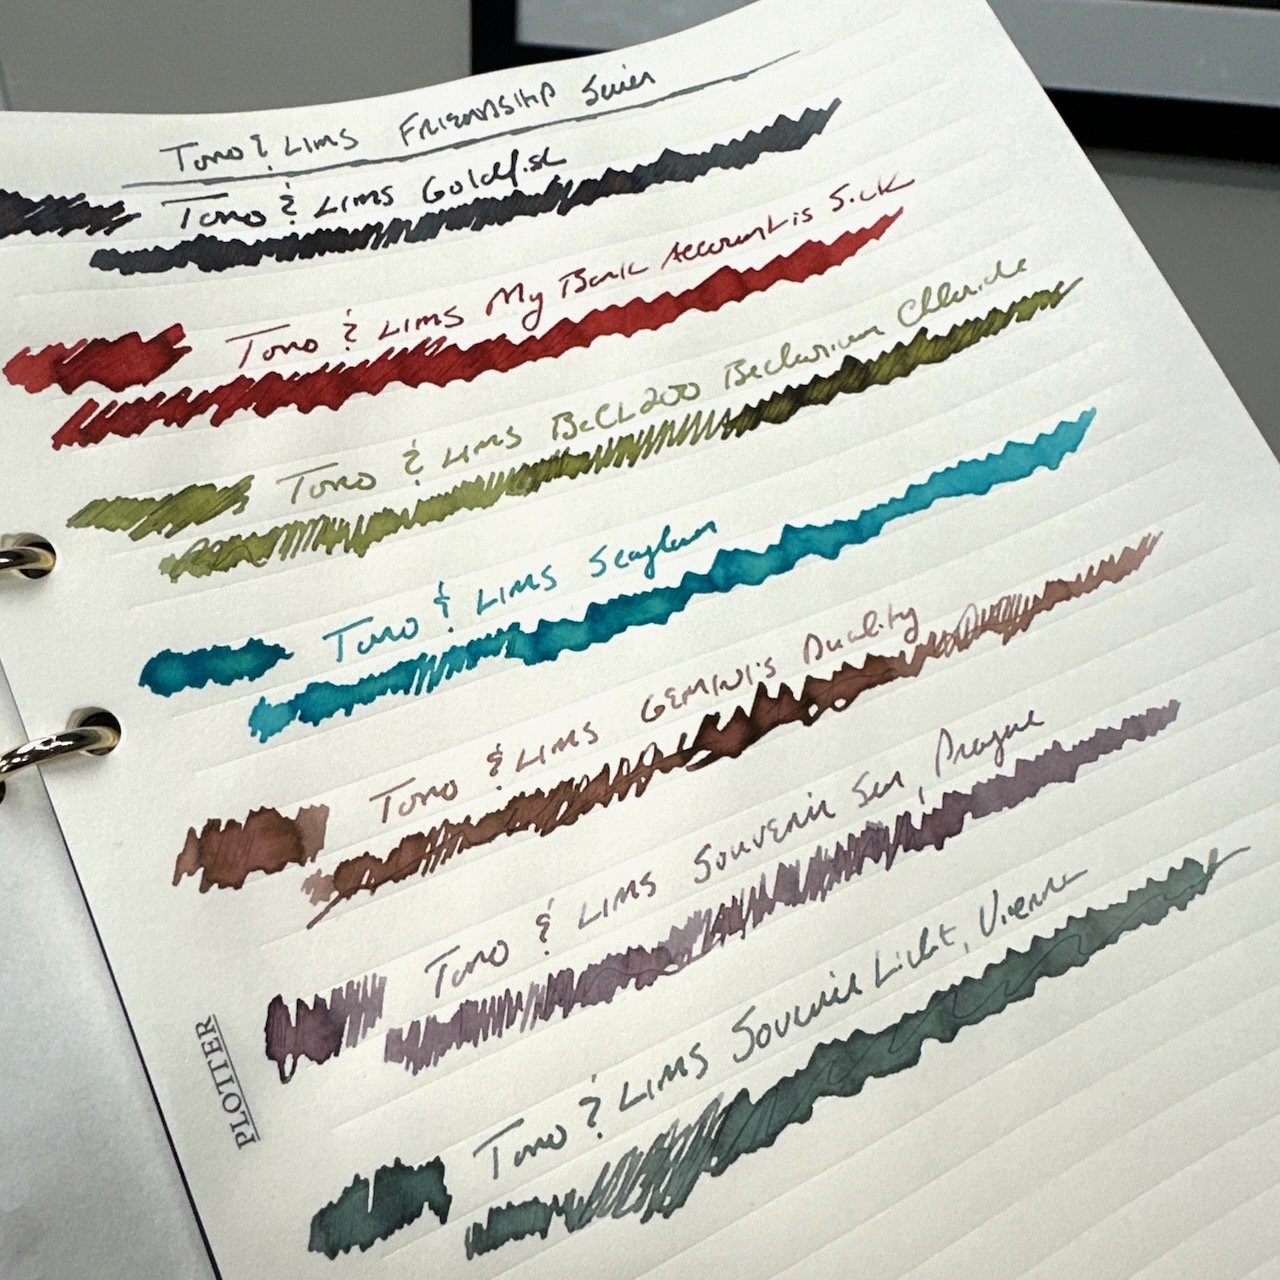 Tono & Lims Friendship Series
Tono & Lims Goldfish
Tono & Lims My Bank Account is Sick
Tono & Lims BeCL200 Beclurium Chloride
Tono & Lims Seaglass
Tono & Lims GEMINI's Duality
Tono & Lims Souvenir Sen, Prague
Tono & Lims Souvenir Licht, Vienna
PLOTTER